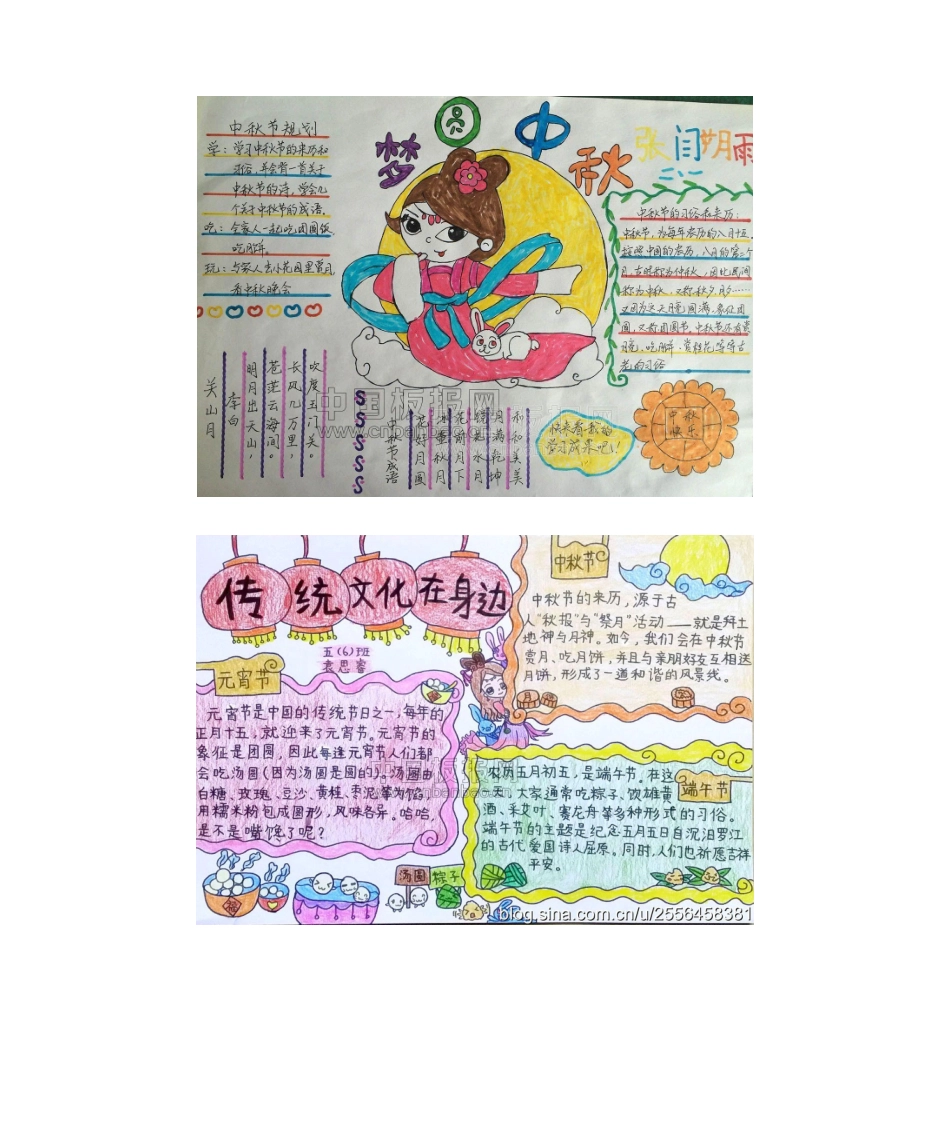 梦圆中秋
中秋节规划
学：学习中秋节的来历和
习俗，并会背一首关于
中秋节的诗，学会几
个关于中秋节的成语。
吃：全家人一起吃团圆饭
吃月饼。
玩：与家人去小花园里赏月
看中秋晚会
二、一
中秋节的习俗和来历：
中秋节，为每年农历的八月十五，
按照中国的农历，八月的第二个
月，古时称为仲秋，因此民间
称为中秋，又称秋夕
又因为这天月亮圆满，象征团
圆，又称团圆节。中秋节还有赏
月亮、吃月饼、赏桂花等等古
老的习俗
关山月
李白
明月出天山，
苍茫云海间。
长风几万里，
吹度玉门关。
中秋节成语
花好月圆
冰壶秋月
花前月下
镜花水月
月满乾坤
和和美美
快来看我的
学习成果吧！
中秋
快乐
中国板报网
www.cnbanbao.cn
传统文化在身边
五(6)班
袁思睿
元宵节
元宵节是中国的传统节日之一，每年的
正月十五，就迎来了元宵节。元宵节的
象征是团圆，因此每逢元宵节人们都
会吃汤圆(因为汤圆是圆的)。汤圆由
白糖、玫瑰、豆沙、黄桂、枣泥等为馅，
用糯米粉包成圆形，风味各异。哈哈，
是不是嘴馋了呢？
中秋节
中秋节的来历，源于古
人“秋报”与“祭月”活动——就是拜土
地神与月神。如今，我们会在中秋节
赏月、吃月饼，并且与亲朋好友互相送
月饼，形成了一道和谐的风景线。
端午节
农历五月初五，是端午节。在这
天，大家通常吃粽子、饮雄黄
酒、采艾叶、赛龙舟等多种形式的习俗。
端午节的主题是纪念五月五日自沉汨罗江
的古代爱国诗人屈原。同时，人们也祈愿吉祥
平安。
汤圆
粽子
福
中国板报网
blog.sina.com.cn/u/2556458381